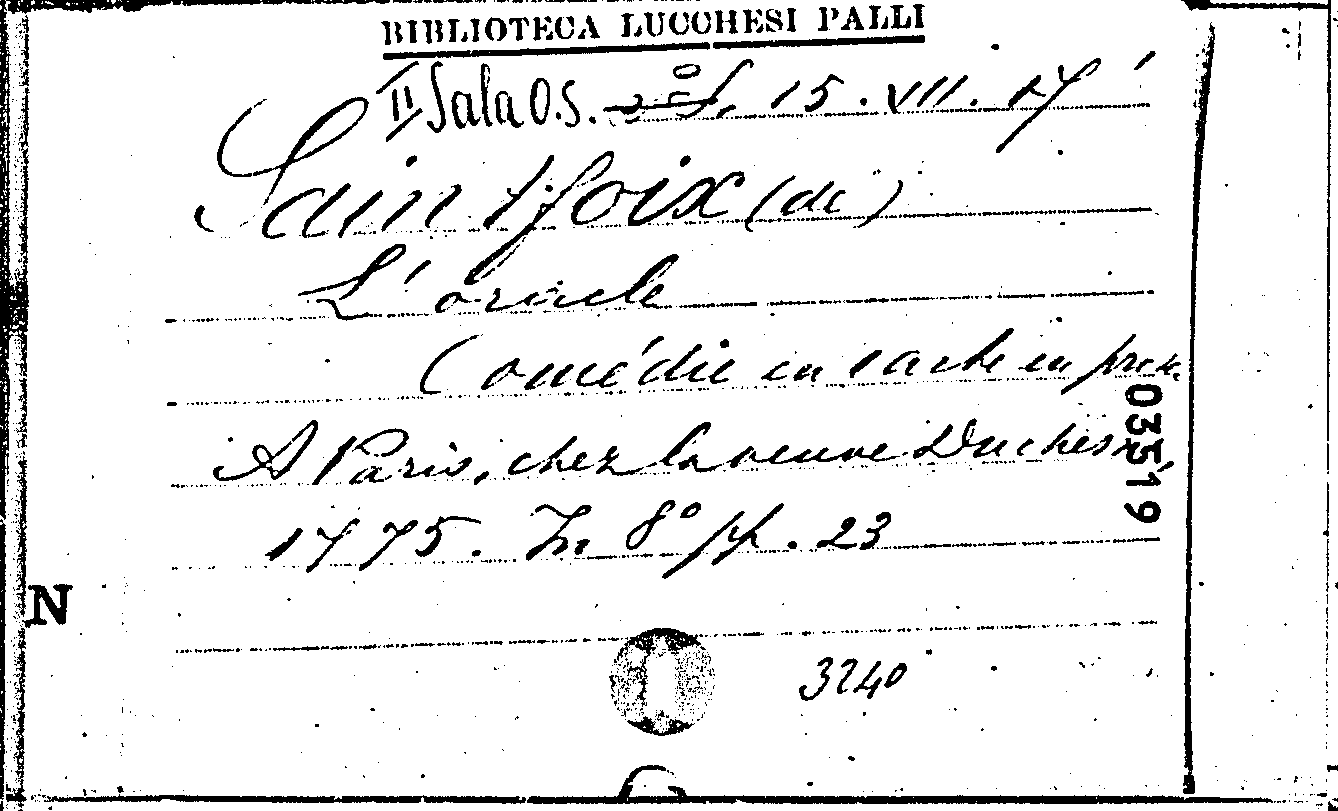 BIBLIOTECA LUCCHESI PALLI
II Sala O.S. 15. VII. 17'
Saintfoix (de)
L'oracle
Comédie en 1 acte en prose
A Paris, chez la veuve Duchesne,
1775. In 8° pp. 23
03519
N
3240